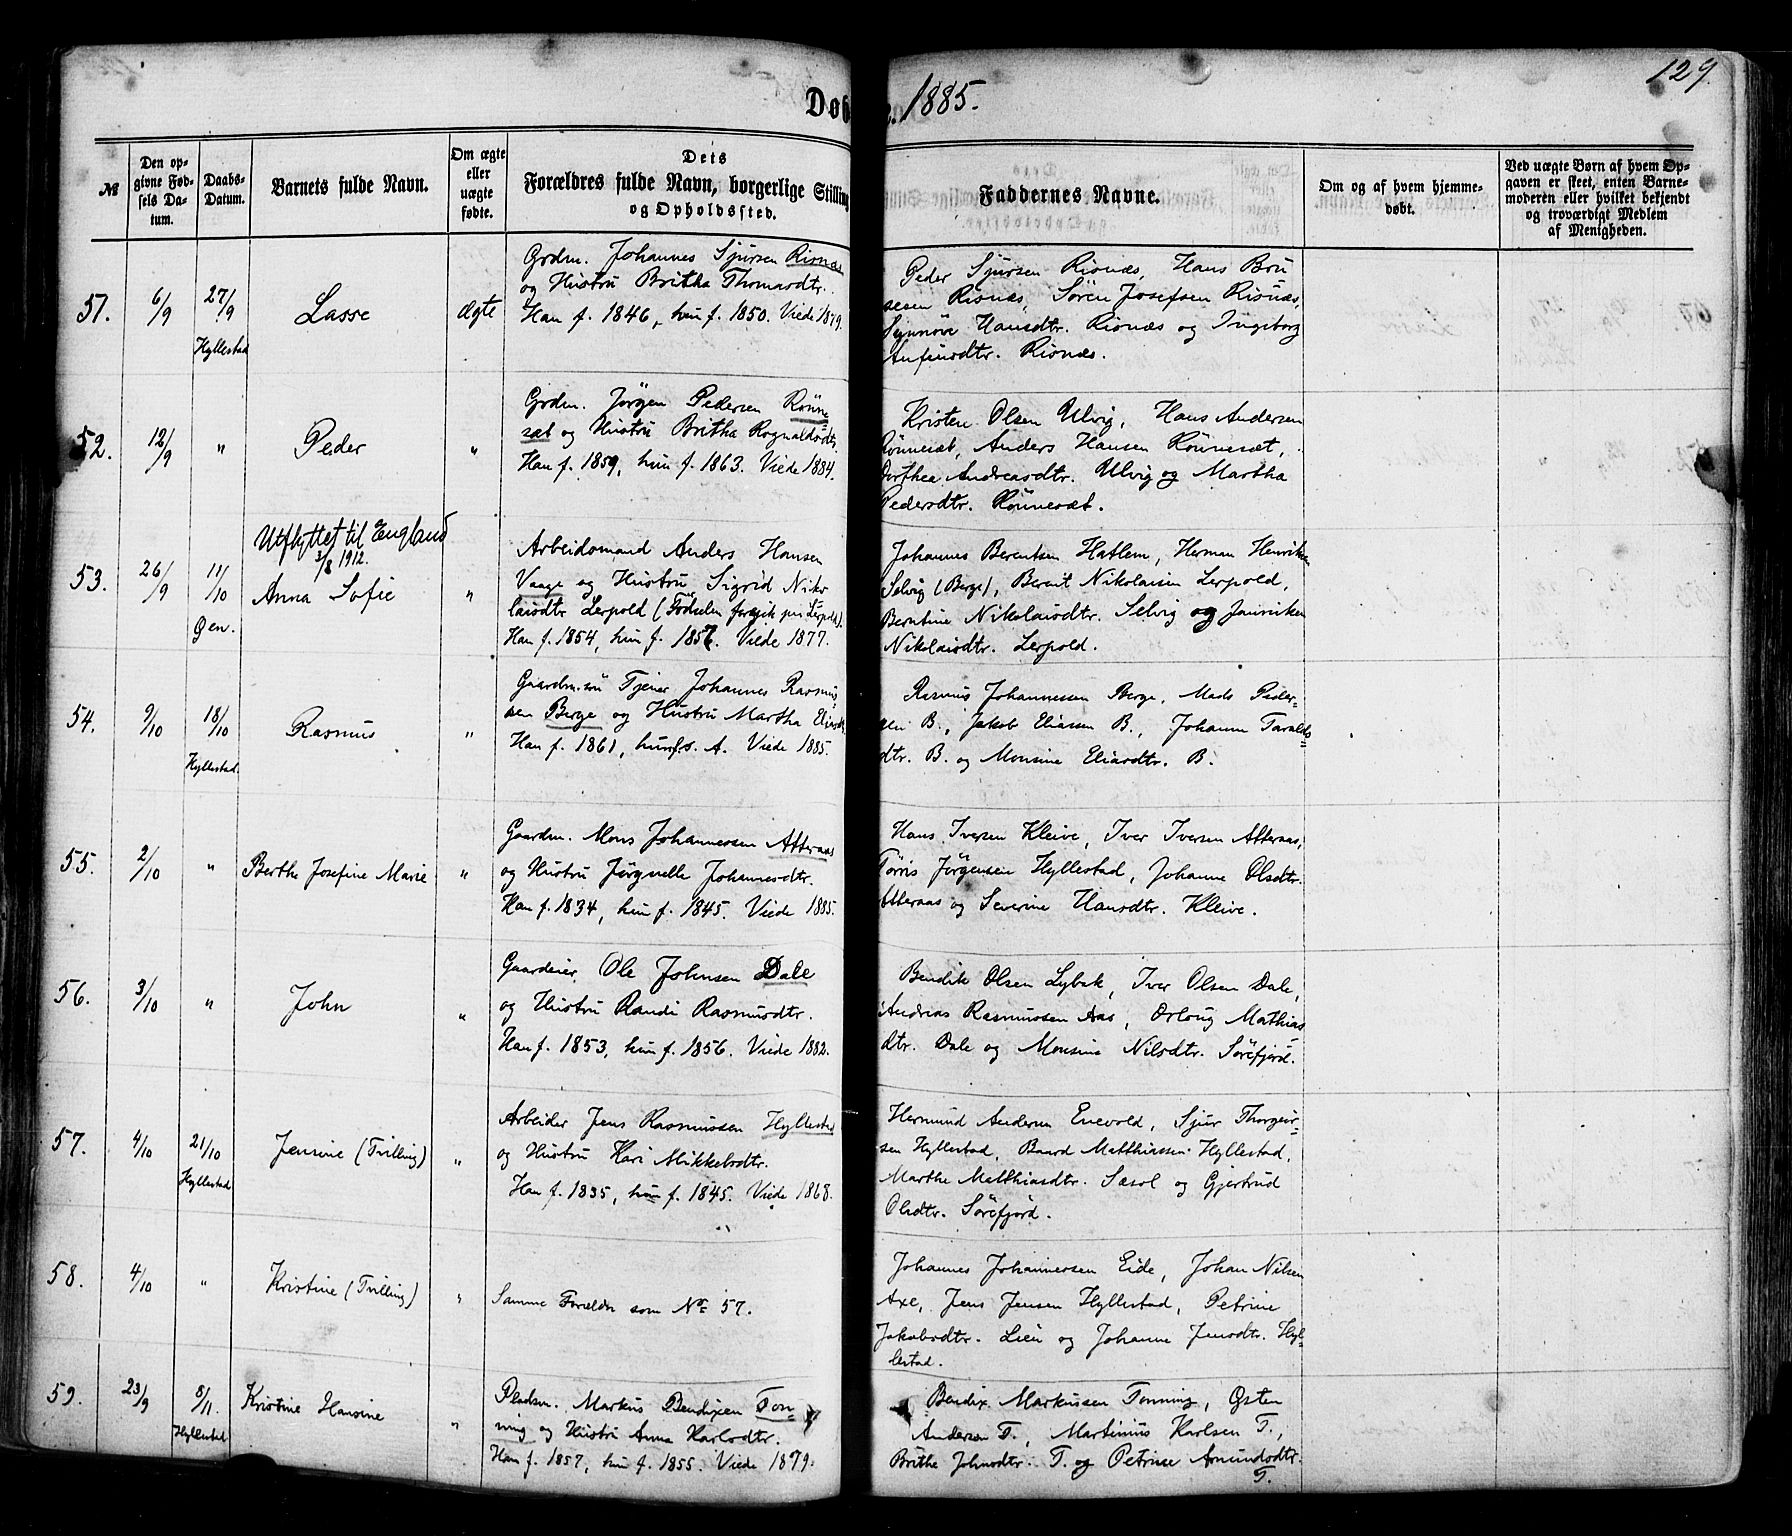 129.
Døb
1885.
№
Den op-
givne Fød-
sels Da-
tum.
Daabs-
Datum.
Barnets fulde Navn.
Om ægte
eller
uægte
fødte.
Dets
Forældres fulde Navn, borgerlige Stilling
og Opholdssted.
Faddernes Navne.
Om og af hvem hjemme-
døbt.
Ved uægte Børn af hvem Op-
gaven er skeet, enten Barne-
moderen eller hvilket bekjendt
og troværdigt Medlem
af Menigheden.
51. 6/9 27/9 Hyllestad
Lasse
ægte
Grdm. Johannes Sjursen Risnæs
og Hustru Britha Thomasdtr.
Han f. 1846, hun f. 1850. Viede 1879.
Peder Sjursen Risnæs, Hans
Risnæs, Søren Josefsen Risnæs,
Synnöve Hansdtr. Risnæs og Ingeborg
Anfinsdtr. Risnæs.
52. 12/9 "
Peder
"
Grdm. Jörgen Pedersen Rönne
sæt og Hustru Britha Rognaldsdtr.
Han f. 1859, hun f. 1863. Viede 1884.
Kristen Olsen Ulvig, Hans Andersen
Rönnesæt, Anders Hansen Rönnesæt,
Dorthea Andreasdtr. Ulvig og Martha
Pedersdtr. Rönnesæt.
53. 26/9 11/10 Øen.
Utflyttet til England
3/8 1912.
Anna Sofie
"
Arbeidsmand Anders Hansen
Vaage og Hustru Sigrid Niko
laisdtr Lerpold (Födselen foregik paa Lerpold).
Han f. 1854, hun f. 1857. Viede 1877.
Johannes Berentsen Hatlem, Herman Henriksen
Selvig (Berge), Berent Nikolaisen Lerpold,
Berntine Nikolaisdtr. Selvig og Janniken
Nikolaisdtr. Lerpold.
54. 9/10 18/10 Hyllestad
Rasmus
"
Gaardm.sön Tjener Johannes Rasmus
sen Berge og Hustru Martha Eliasdtr.
Han f. 1861, hun f. s. A. Viede 1885.
Rasmus Johannessen Berge, Mads Peder-
sen B., Jakob Eliassen B., Johanne Taralds-
dtr. B. og Monsine Eliasdtr. B.
55. 2/10 "
Berthe Josefine Marie
"
Gaardm. Mons Johannessen Atteraas
og Hustru Jörgnelle Johannesdtr.
Han f. 1834, hun f. 1845. Viede 1885.
Hans Iversen Kleive, Iver Iversen Atteraas,
Tørris Jørgensen Hyllestad, Johanne Olsdtr.
Atteraas og Severine Hansdtr. Kleive.
56. 3/10 "
John
"
Gaardeier Ole Johnsen Dale
og Hustru Randi Rasmusdtr.
Han f. 1853, hun f. 1856. Viede 1882.
Bendik Olsen Lybæk, Iver Olsen Dale,
Andreas Rasmussen Aas, Orloug Mathias
dtr. Dale og Monsine Nilsdtr. Sörefjord.
57. 4/10 21/10 Hyllestad
Jensine (Tvilling)
"
Arbeider Jens Rasmussen Hyllestad
og Hustru Kari Mikkelsdtr.
Han f. 1835, hun f. 1845. Viede 1868.
Hermund Andersen Enevold, Sjur Thorgeir-
sen Hyllestad, Baard Matthiassen Hyllestad,
Marthe Matthiasdtr. Sæsol og Gjertrud
Olsdtr. Sörefjord.
58. 4/10 "
Kristine (Tvilling)
"
Samme Forældre som No 57.
Johannes Johannessen Eide, Johan Nilsen
Axe, Jens Jensen Hyllestad, Petrine
Jakobsdtr. Lien og Johanne Jensdtr. Hyl-
lestad.
59. 23/9 8/11. Hyllestad
Kristine Hansine
"
Pladsm. Markus Bendixen Ton-
ning og Hustru Anna Karlsdtr.
Han f. 1857, hun f. 1855. Viede 1879.
Bendix Markussen Tonning, Østen
Andersen T., Martinius Karlsen T.,
Brithe Johnsdtr. T. og Petrine Amundsdtr.
T.